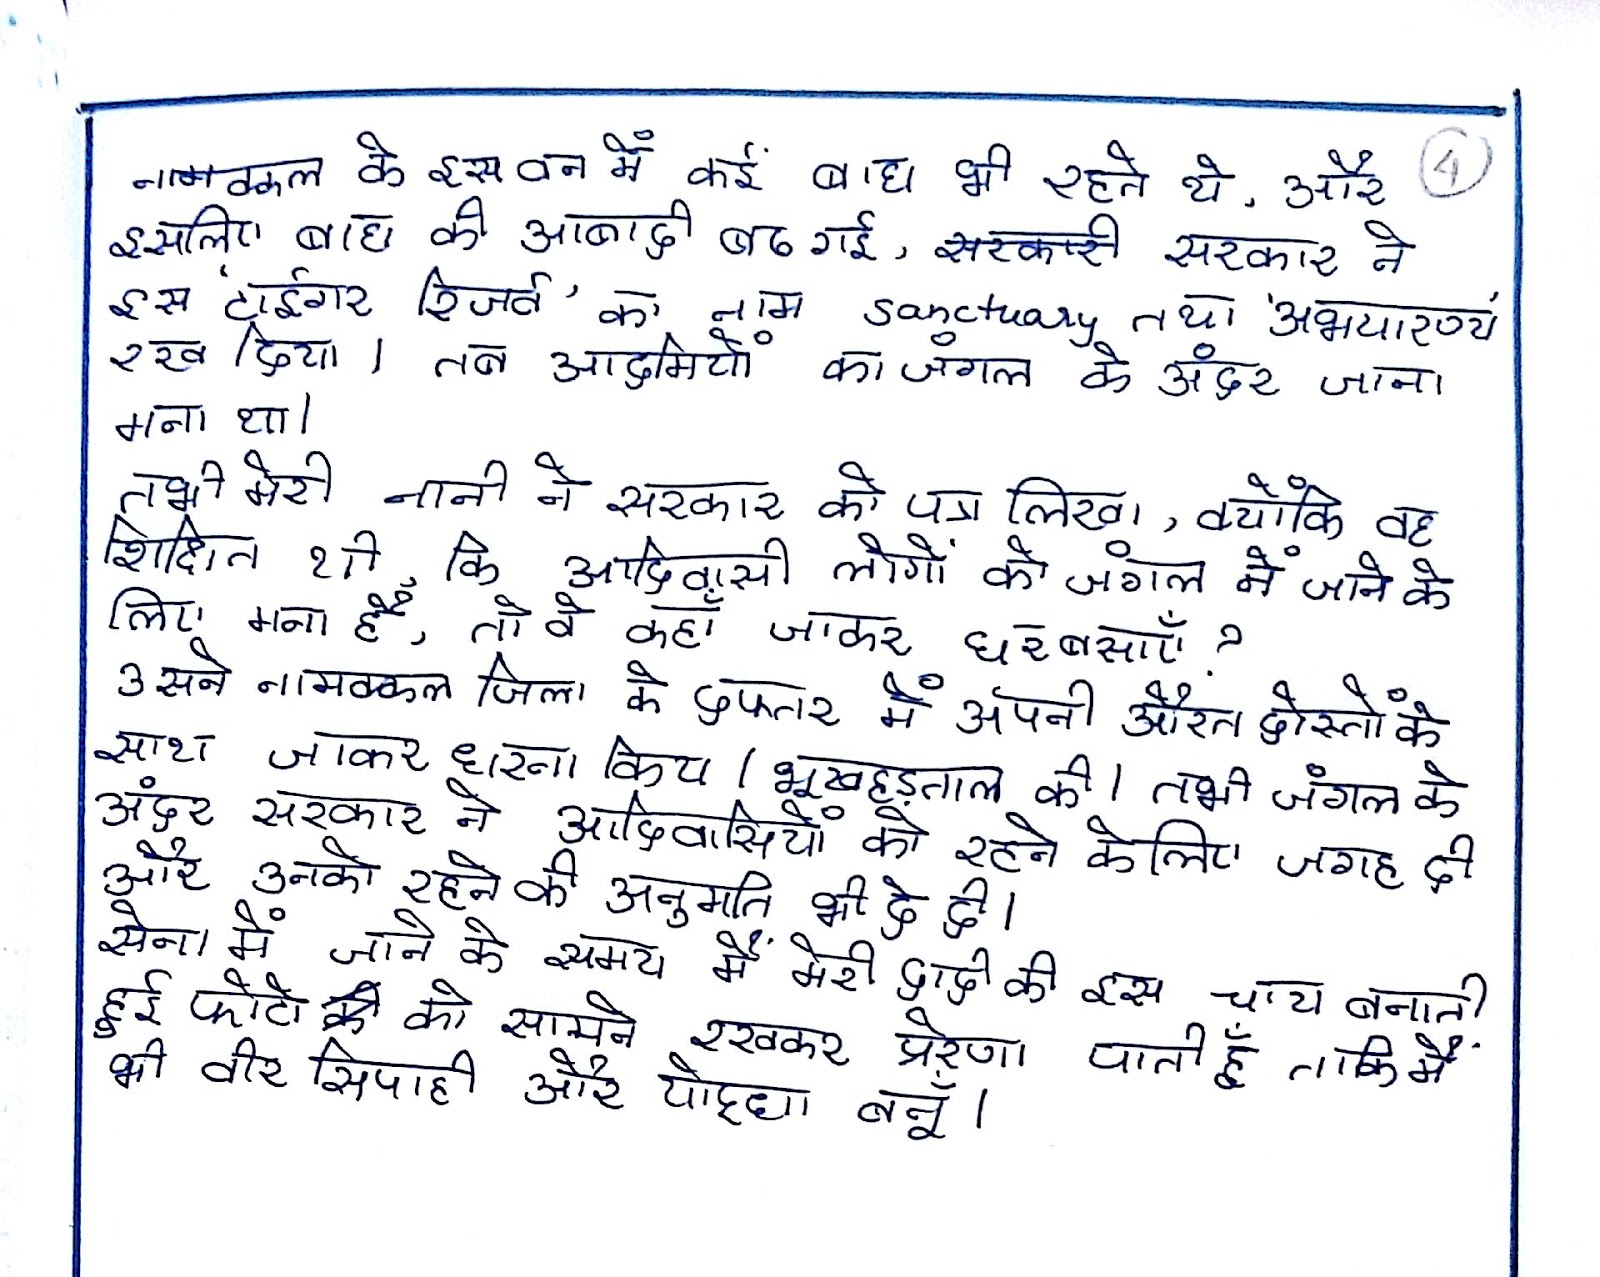 नामक्कल के इस वन में कई बाघ भी रहते थे, और ④
इसलिए बाघ की आबादी बढ गई, सरकारी सरकार ने
इस 'टाईगर रिजर्व' का नाम sanctuary तथा 'अभयारण्य'
रख दिया। तब आदमियों का जंगल के अंदर जाना
मना था।
तभी मेरी नानी ने सरकार को पत्र लिखा, क्योंकि वह
शिक्षित थी, कि आदिवासी लोगों को जंगल में जाने के
लिए मना हैं, तो वे कहाँ जाकर घर बसाएँ?
उसने नामक्कल जिला के दफतर में अपनी औरत दोस्तों के
साथ जाकर धरना किय। भूखहड़ताल की। तभी जंगल के
अंदर सरकार ने आदिवासियों को रहने के लिए जगह दी
और उनको रहने की अनुमति भी दे दी।
सेना में जाने के समय मैं मेरी दादी की इस चाय बनाती
हुई फोटो की को सामने रखकर प्रेरणा पाती हूँ ताकि मैं
भी वीर सिपाही और योद्धा बनूँ।